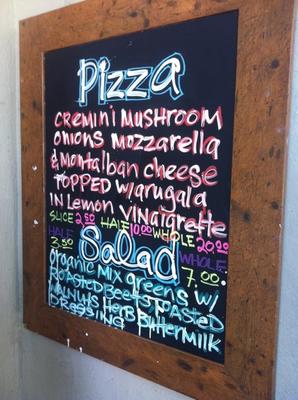 Pizza
CREMINI MUSHROOM
ONIONS MOZZARELLA
& MONTALBAN CHEESE
TOPPED W/ARUGALA
IN LEMON VINAIGRETTE
SLICE 2.50 HALF 10.00 WHOLE 20.00
Salad
HALF 3.50 WHOLE 7.00
ORGANIC MIX GREENS W/
ROASTED BEETS TOASTED
WALNUTS HERB BUTTERMILK
DRESSING